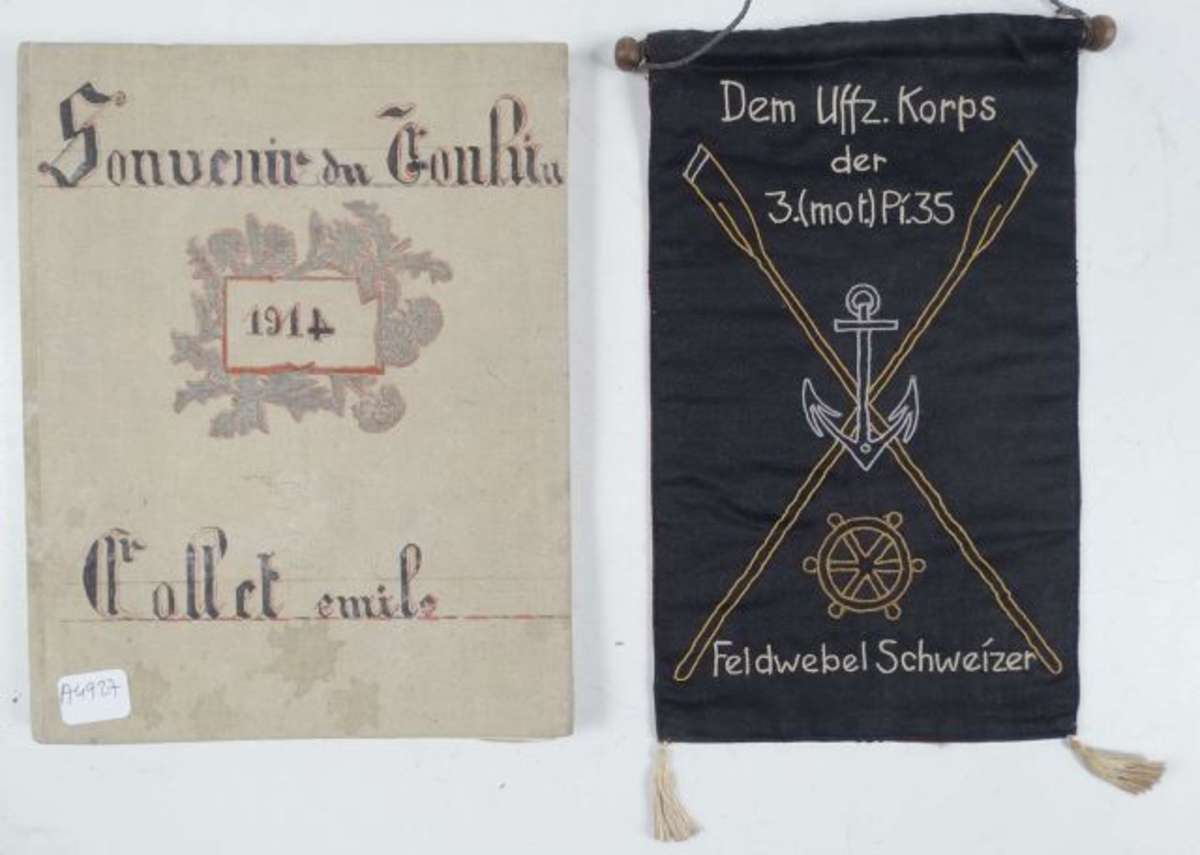 Souvenir du Tonkin
1914
Collet emile
A4927
Dem Uffz. Korps
der
3.(mot.)Pi.35
Feldwebel Schweizer